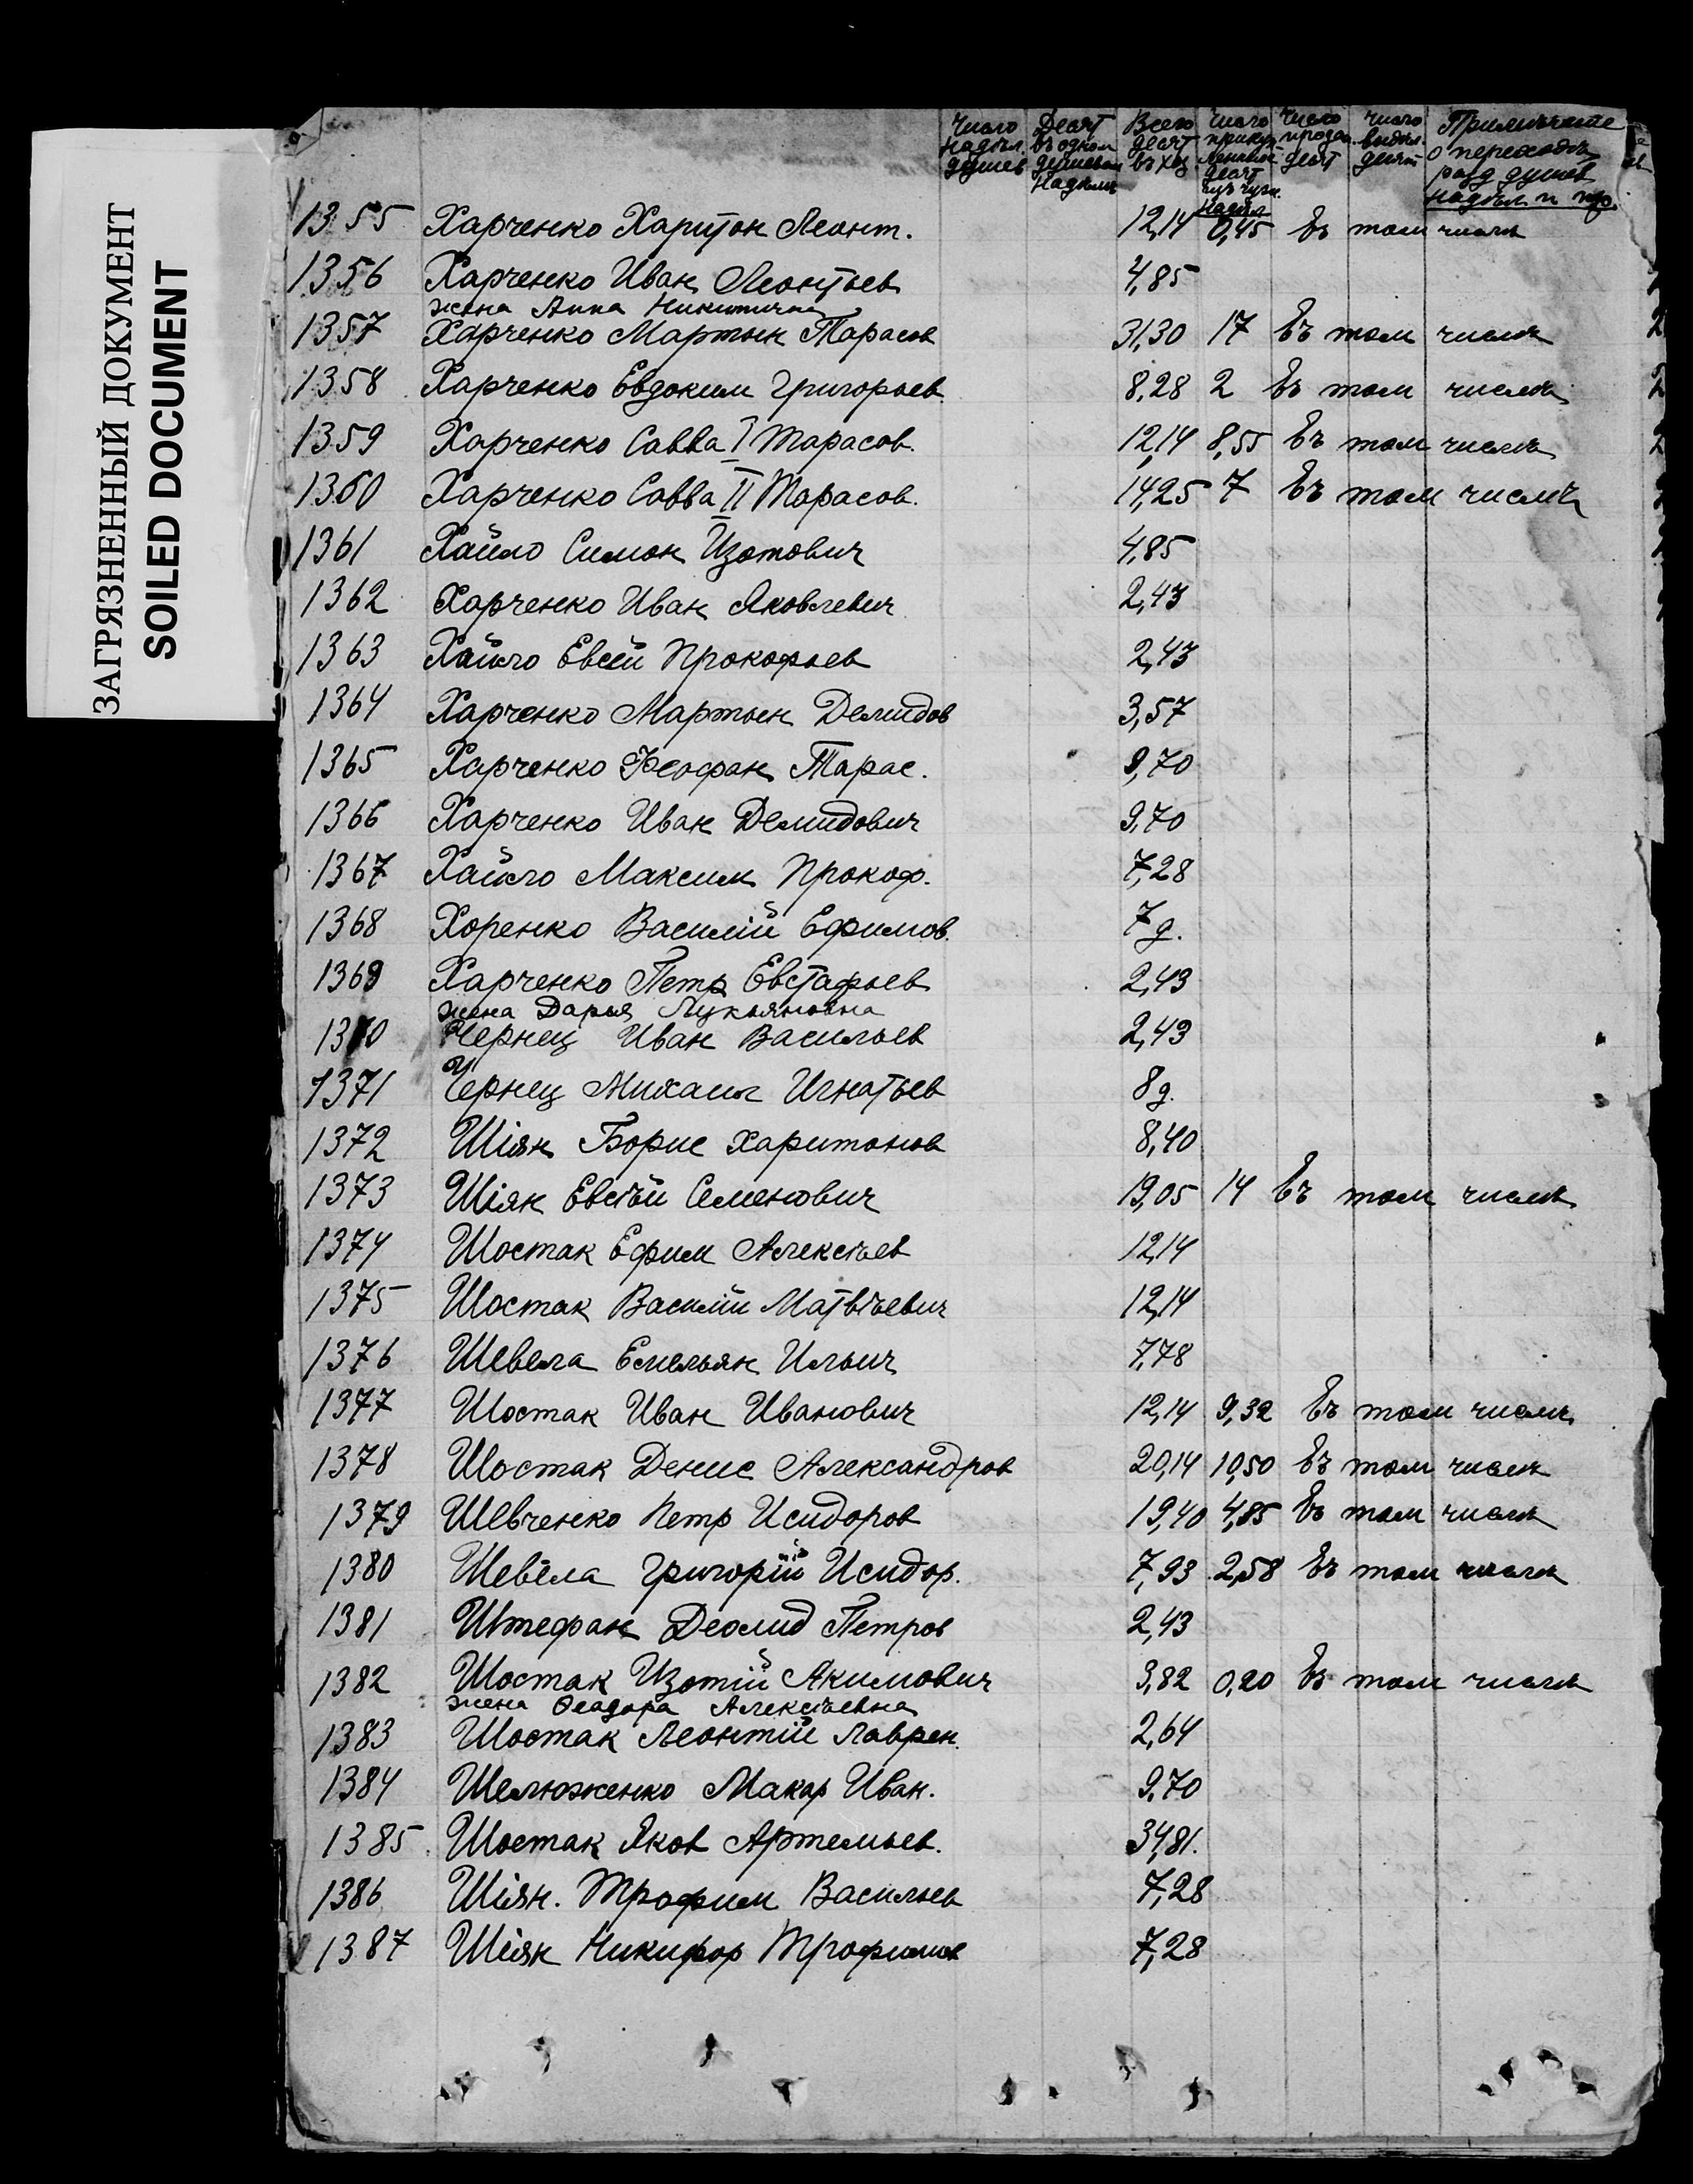 ЗАГРЯЗНЕННЫЙ ДОКУМЕНТ
SOILED DOCUMENT
Число надѣл. душев Десят въ одном душевом надѣлѣ Всего десят въ хоз Число прикуп десят чуж надѣл Число продан десят Число выдѣл. десят Примѣчате о переходѣ душев надѣл и пр.
1355 Харченко Харитон Леонт. 12,14 0,45 Въ том числѣ
1356 Харченко Иван Леонтьев 4,85
жена Анна Никитична
1357 Харченко Мартын Тарасов 31,30 17 Въ том числѣ
1358 Харченко Евдоким Григорьев 8,28 2 Въ том числѣ
1359 Харченко Савва I Тарасов. 12,14 8,55 Въ том числѣ
1360 Харченко Савва II Тарасов. 14,25 7 Въ том числѣ
1361 Хайло Симон Изотович 4,85
1362 Харченко Иван Яковлевич 2,43
1363 Хайло Евсей Прокофьев 2,43
1364 Харченко Мартын Демидов 3,57
1365 Харченко Феофан Тарас. 9,70
1366 Харченко Иван Демидович 9,70
1367 Хайло Максим Прокоф. 7,28
1368 Хоренко Василій Ефимов. 7 д.
1369 Харченко Петр Евстафьев 2,43
жена Дарья Лукьяновна
1370 Чернец Иван Васильев 2,43
1371 Чернец Михаил Игнатьев 8 д.
1372 Шіян Борис Харитонов 8,40
1373 Шіян Евсѣй Семенович 19,05 14 Въ том числѣ
1374 Шостак Ефим Алексѣев 12,14
1375 Шостак Василій Матвѣевич 12,14
1376 Шевела Емельян Ильич 7,78
1377 Шостак Иван Иванович 12,14 9,32 Въ том числѣ
1378 Шостак Денис Александров 20,14 10,50 Въ том числѣ
1379 Шевченко Петр Исидоров 19,40 4,85 Въ том числѣ
1380 Шевела Григорій Исидор. 7,93 2,58 Въ том числѣ
1381 Штефан Деомид Петров 2,43
1382 Шостак Изотій Акимович 3,82 0,20 Въ том числѣ
жена Феадора Алексѣевна
1383 Шостак Леонтій Лаврен. 2,64
1384 Шелюженко Макар Иван. 9,70
1385 Шостак Яков Артемьев. 34,81.
1386 Шіян. Трофим Васильев 7,28
1387 Шіян Никифор Трофимов 7,28